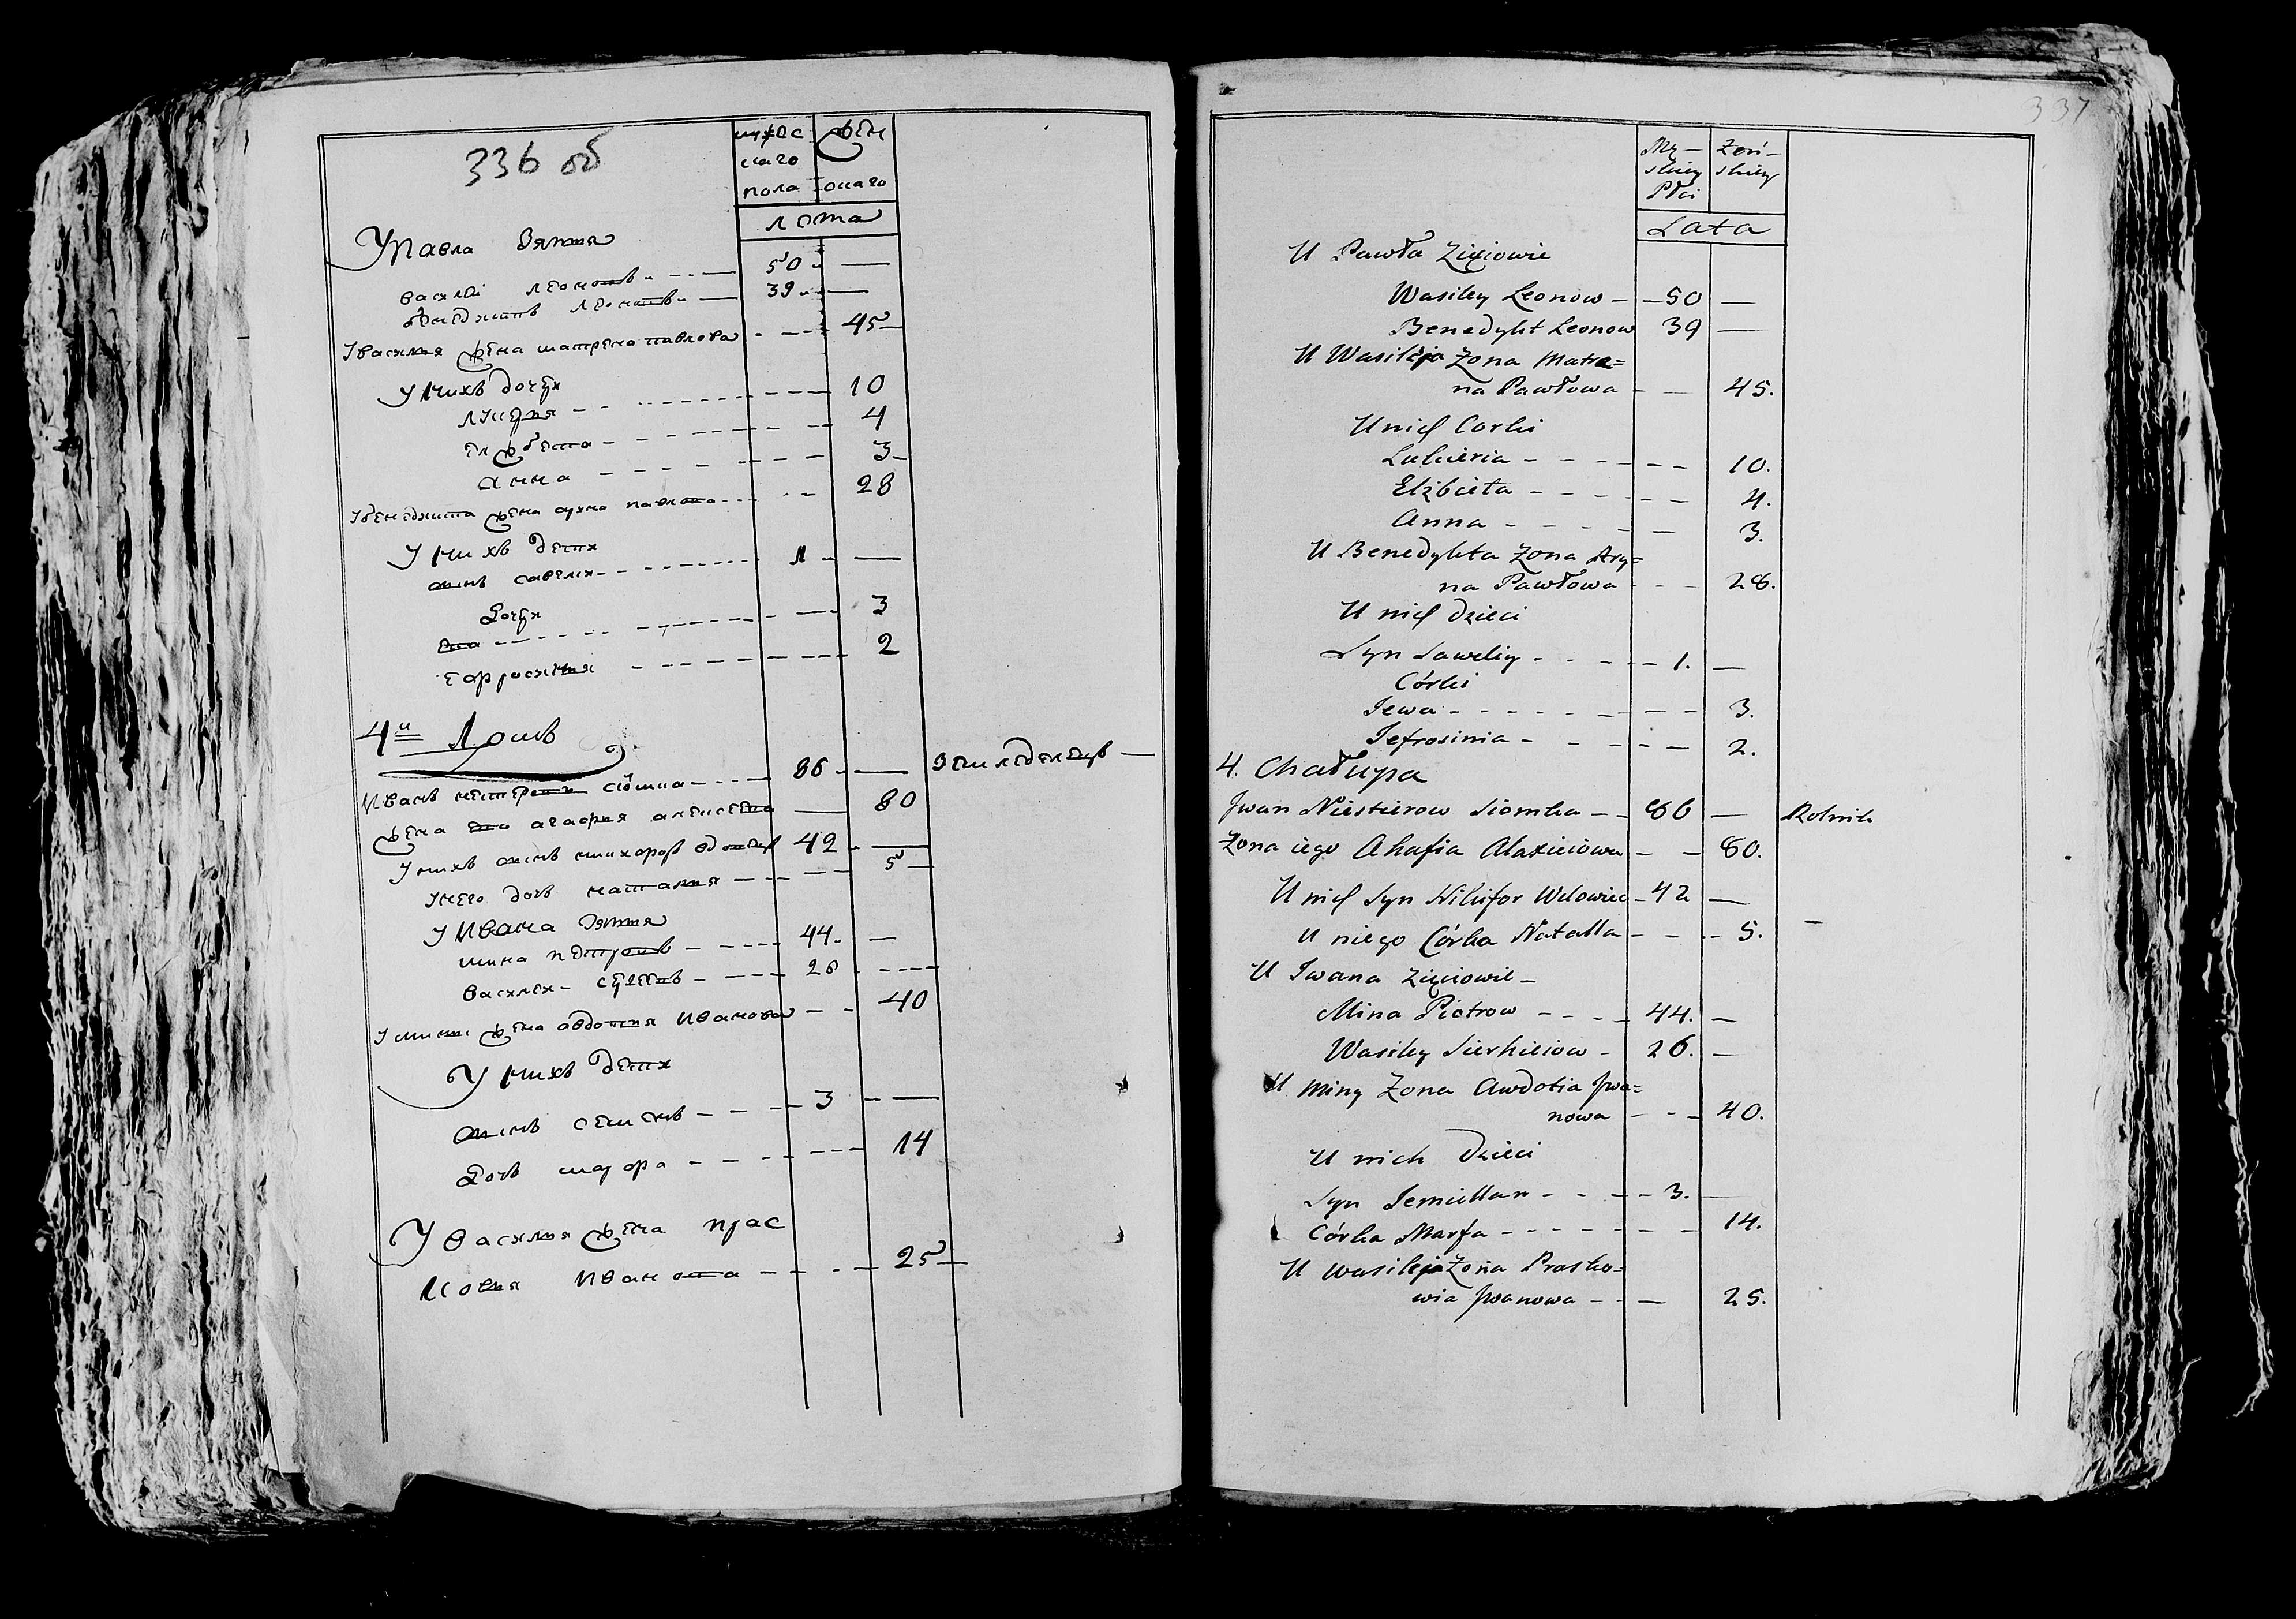 336 об
мужес
каго
пола
жен
скаго
лета
У Павла Зятья
Василей Леонов - - - 50 - —
Бенедыктъ Леоновъ - — 39 - —
У Василья жена Матрена Павлова - - - 45 —
У нихъ дочери
Лукерия - - - - - 10
Елжбета - - - - - 4
Анна - - - - - 3 -
У Бенедыкта жена Арина Павлова - - - 28
У нихъ дети
сынъ Савелей - - - - 1 - —
Дочери
Ева - - - - - 3
Ефросиния - - - - - 2
4й Домъ
Иванъ Нестеровъ Сіомка - - - 86 - — Земледелецъ —
Жена его Агафия Алексеева — 80
У нихъ сынъ Никифоръ Вдовецъ 42 - —
У него дочь Наталия - - - 5 —
У Ивана Зятья
Мина Петровъ - - - 44. —
Василей - Сергеевъ - - - 26 - - -
У Мины жена Авдотия Иванова - - 40
У нихъ дети
Сынъ Семионъ - - - 3 - —
Дочь Марфа - - - - 14
У Василия жена Прас
ковия Иванова - - - 25 —
337
Mę-
skiey
Płci
Żeń-
skiey
Lata
U Pawła Zięciowie
Wasiley Leonow - - 50 —
Benedykt Leonow 39 —
U Wasileja Żona Matre=
na Pawłowa - — 45.
U nich Corki
Lukieria - - - - - 10.
Elżbieta - - - - - 4.
Anna - - - - — 3.
U Benedykta Żona Ary=
na Pawłowa - - - 28.
U nich Dzieci
Syn Saweliy - - - - 1. —
Córki
Jewa - - - - - 3.
Jefrosinia - - - - - 2.
4. Chałupa
Jwan Niestierow Siomka - - 86 — Rolnik
Żona iego Ahafia Alaxieiowa - - 80.
U nich Syn Nikifor Wdowiec - 42 —
U niego Córka Natalla - - - 5. -
U Iwana Zięciowie -
Mina Piotrow - - - - 44. —
Wasiley Sierhieiow - 26. —
U Miny Żona Awdotia Jwa=
nowa - - - 40.
U nich Dzieci
Syn Jemiellan - - - - 3. —
Córka Marfa - - - - - 14.
U Wasileja Żona Prasko=
wia Jwanowa - - — 25.